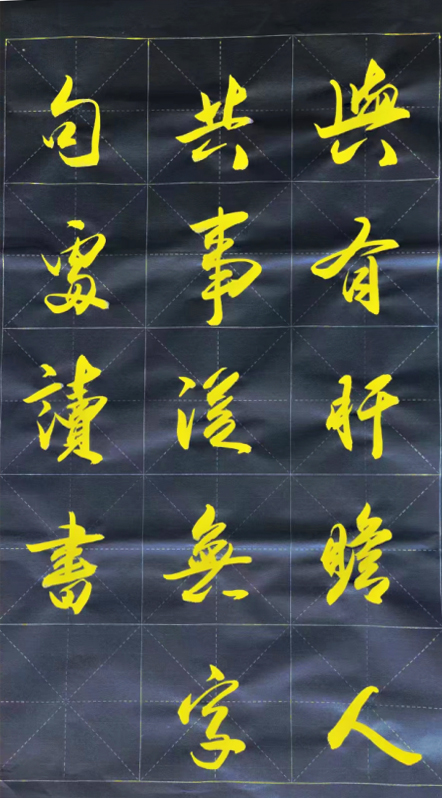 與有肝膽人
共事從無字
句處讀書